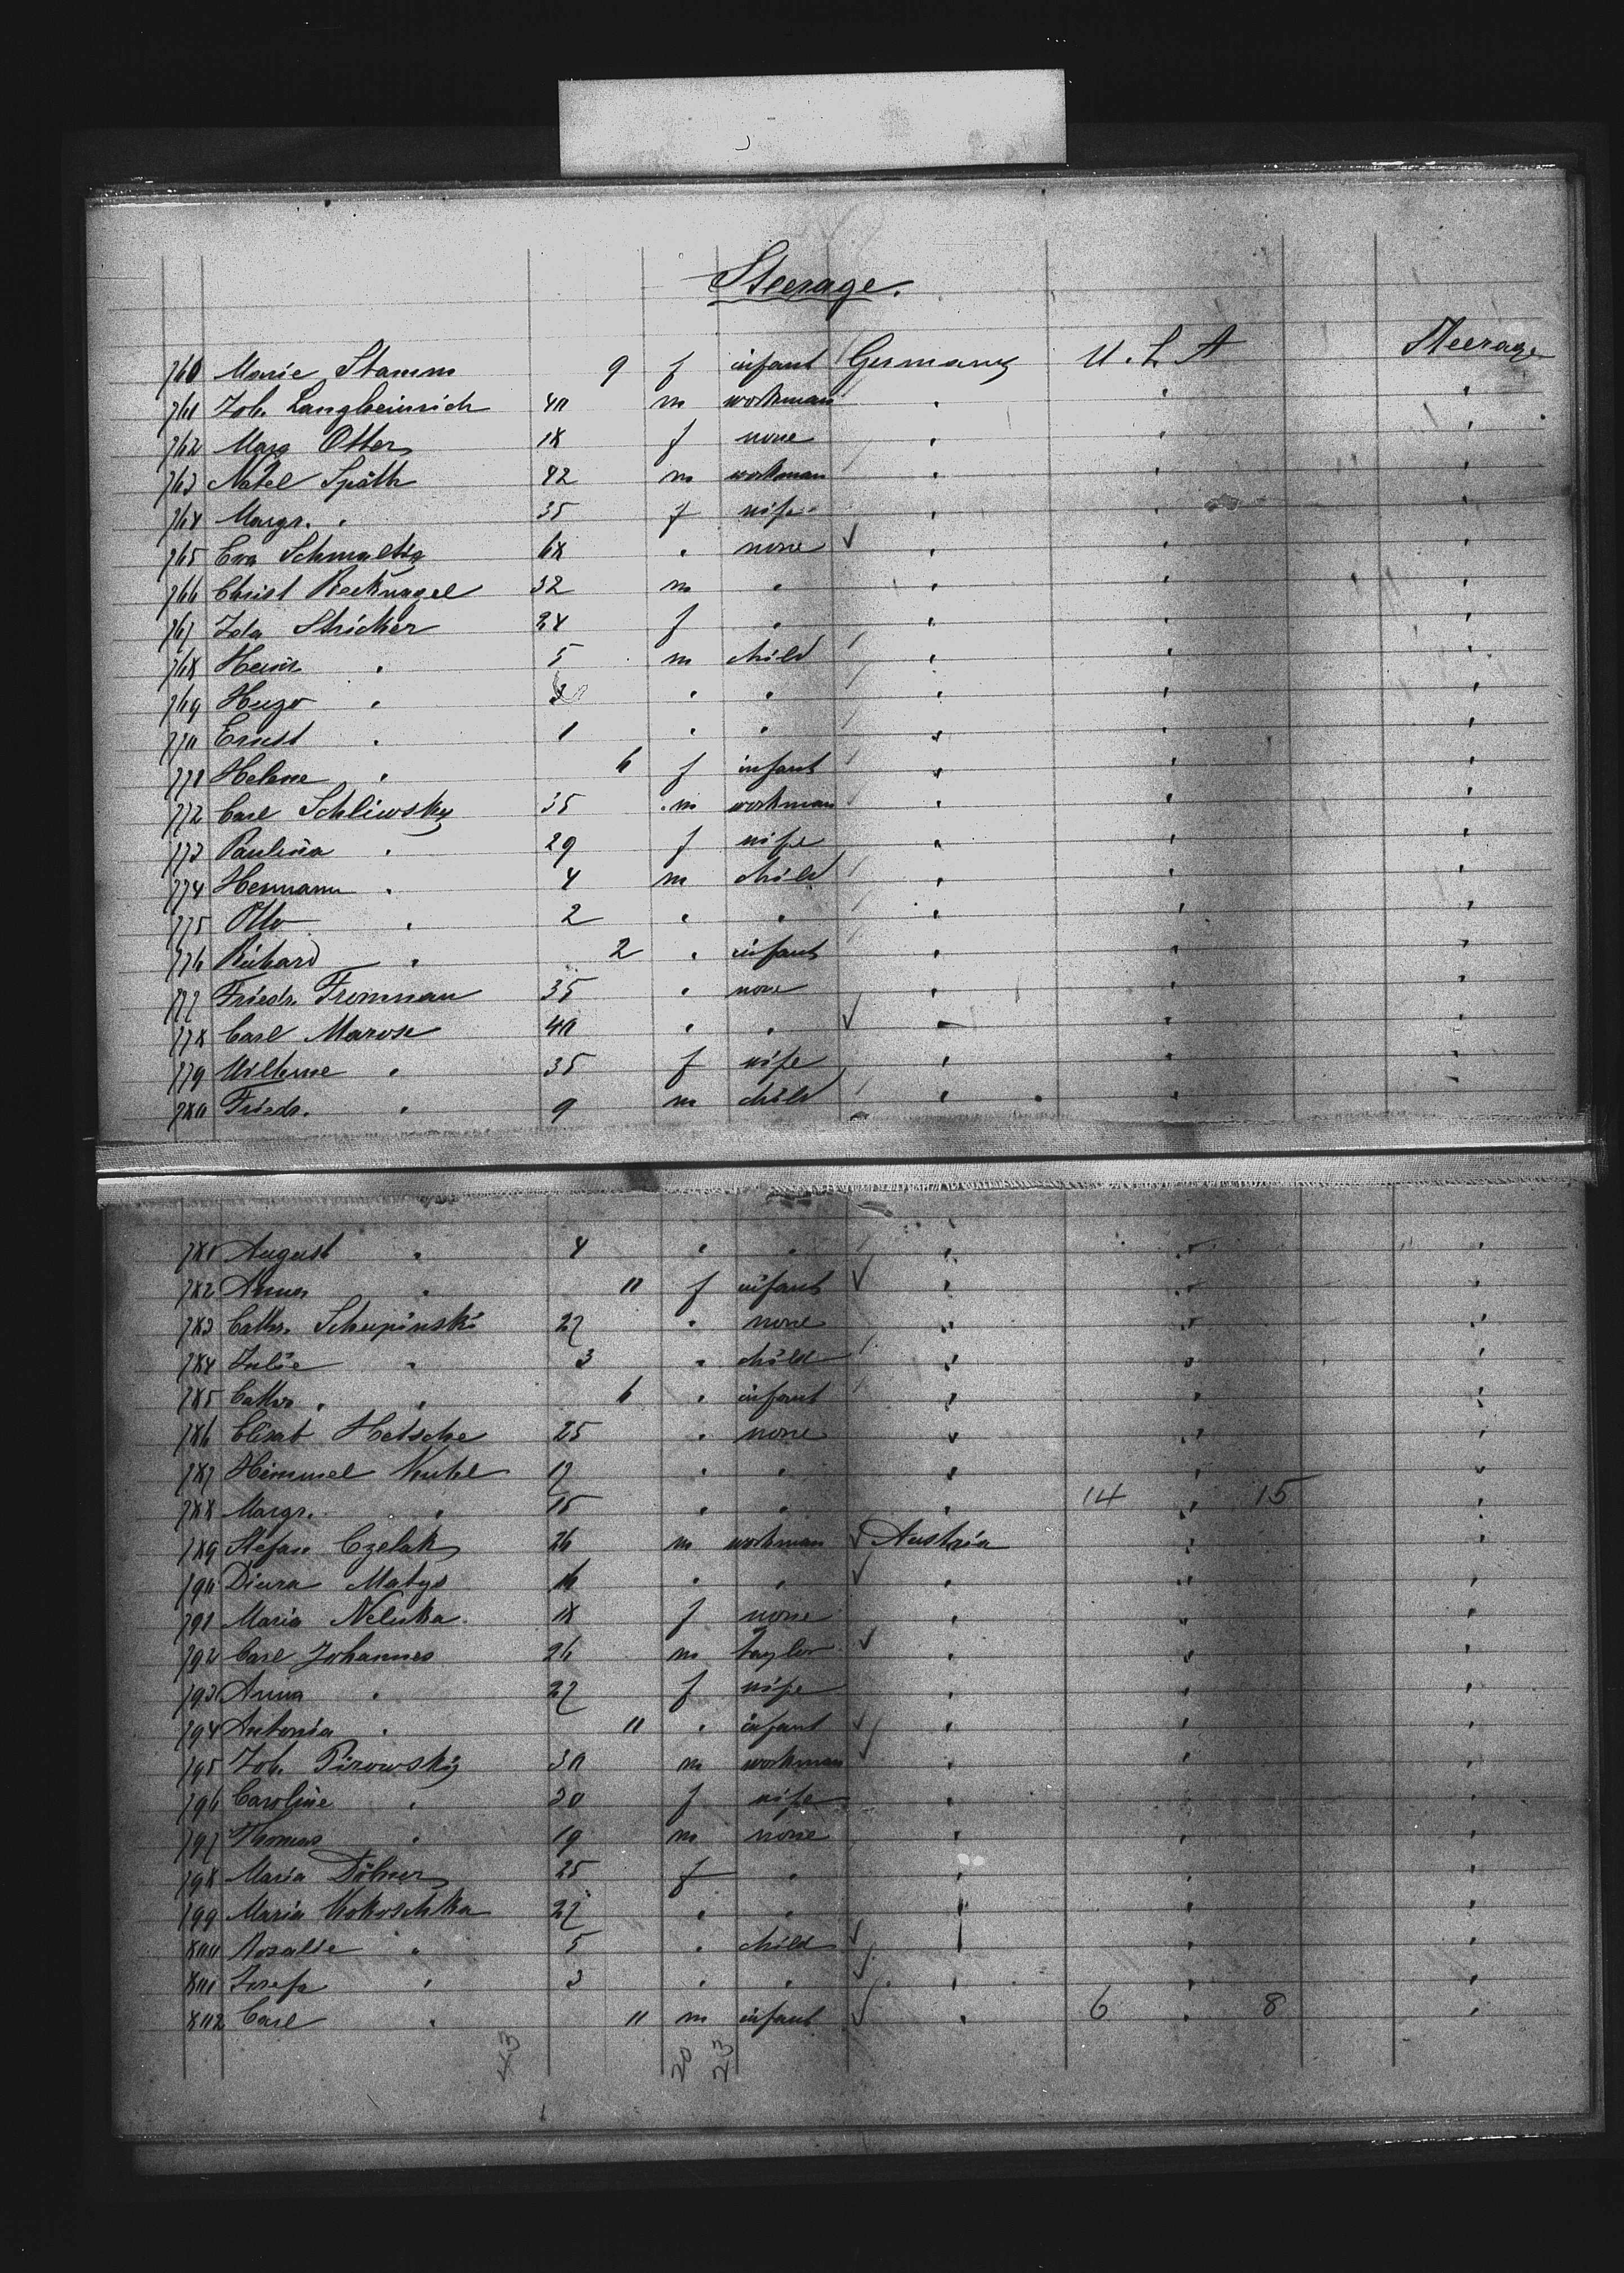 Steerage.
760 Marie Stamm 9 f infant Germany U. S. A Steerage
761 Joh. Langheinrich 40 m workman " " "
762 Marg Otter 18 f none " " "
763 Natel Späth 42 m workman " " "
764 Margr. " 35 f wife " " "
765 Eva Schmaltig 68 " none " " "
766 Christ Recknagel 32 m " " " "
767 Ida Stricker 24 f " " " "
768 Heinr " 5 m child " " "
769 Hugo " 3 " " " " "
770 Ernst " 1 " " " " "
771 Helene " 6 f infant " " "
772 Carl Schliwsky 35 m workman " " "
773 Paulina " 29 f wife " " "
774 Hermann " 4 m child " " "
775 Otto " 2 " " " " "
776 Richard " 2 " infant " " "
777 Friedr. Fromman 35 " none " " "
778 Carl Marose 40 " " " " "
779 Wilhme " 35 f wife " " "
780 Friedr. " 9 m child " " "
781 August " 4 " " " " "
782 Anna " 11 f infant " " "
783 Cathr. Schupinski 27 " none " " "
784 Julie " 3 " child " " "
785 Cathr. " 6 " infant " " "
786 Elisab Hetsche 25 " none " " "
787 Himmel 17 " " " " "
788 Margr. " 15 " " " 14 " 15 "
789 Stefan Czelak 26 m workman Austria " "
790 Diura Matys 16 " " " " "
791 Maria Neluka 18 f none " " "
792 Carl Johannes 26 m taylor " " "
793 Anna " 27 f wife " " "
794 Antonia " 11 " infant " " "
795 Joh. Pirowsky 30 m workman " " "
796 Caroline " 20 f wife " " "
797 Thomas " 19 m none " " "
798 Maria Döhner 25 f " " " "
799 Maria Kokoschka 27 " " " " "
800 Rosalie " 5 " child " " "
801 Josefa " 3 " " " " "
802 Carl " 11 m infant " 6 " 8 "
43 20 23